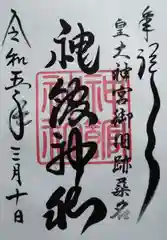 奉拝
皇大神宮御旧跡桑名
神館神社
令和五年三月十日